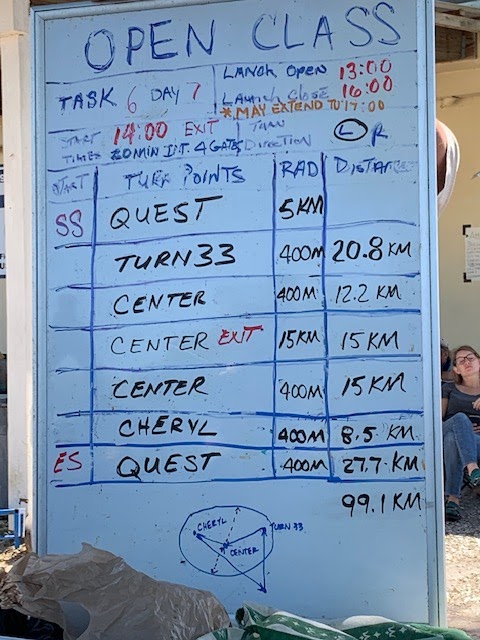 OPEN CLASS
TASK 6 DAY 7
LAUNCH OPEN 13:00
LAUNCH CLOSE 16:00
*MAY EXTEND TO 17:00
START 14:00 EXIT
TIMES 20 MIN INT. 4 GATES
TURN
DIRECTION L R
START TURN POINTS RAD DISTANCE
SS QUEST 5KM
TURN33 400M 20.8 KM
CENTER 400M 12.2 KM
CENTER EXIT 15KM 15 KM
CENTER 400M 15KM
CHERYL 400M 8.5 KM
ES QUEST 400M 27.7 KM
99.1 KM
CHERYL
TURN 33
CENTER